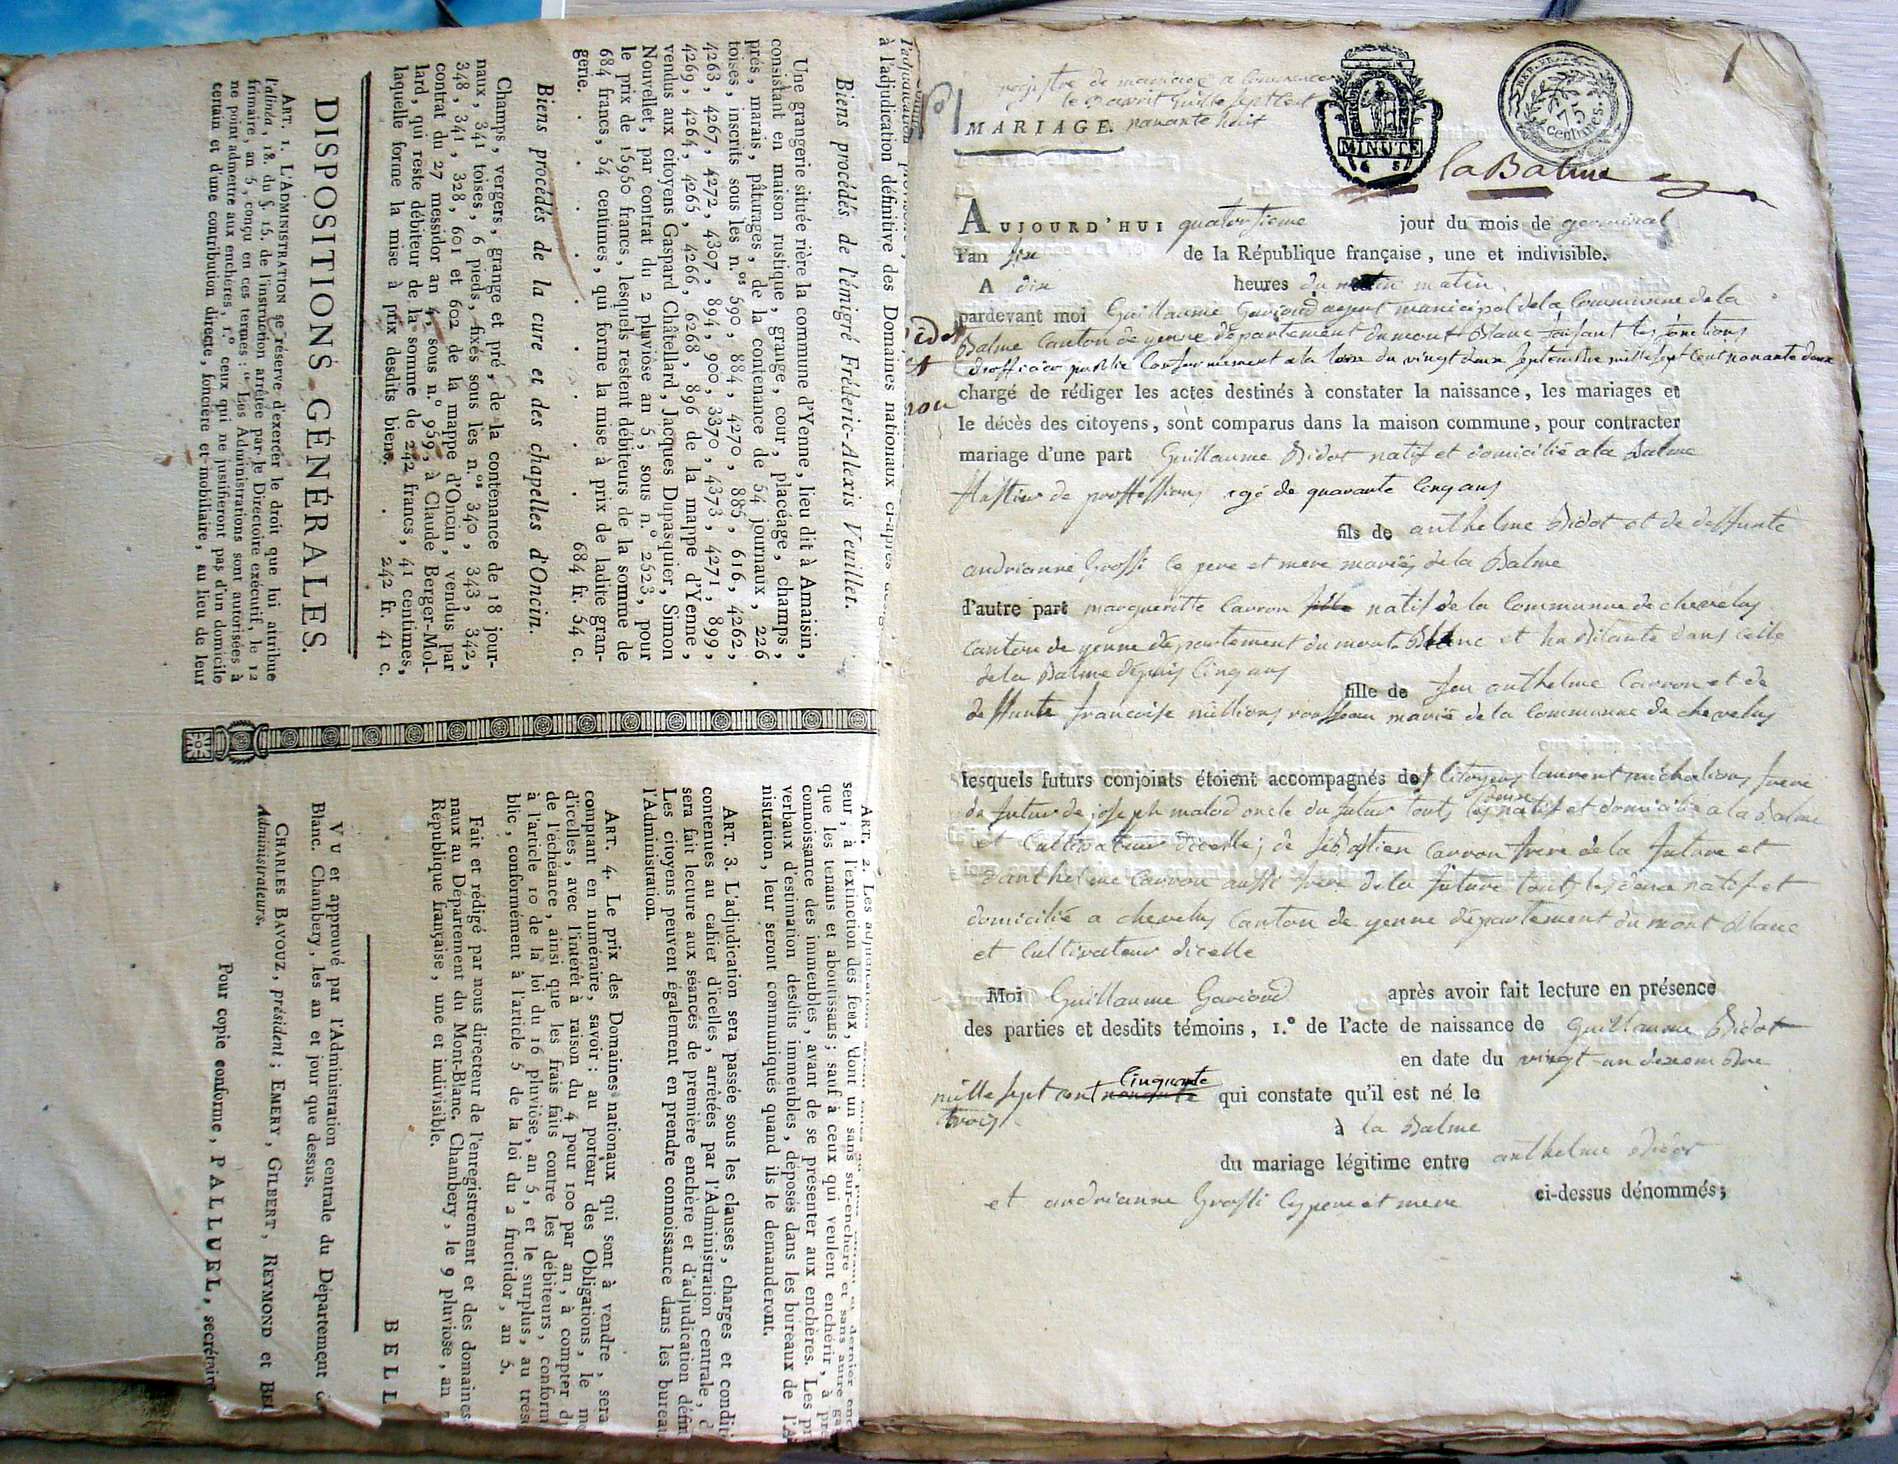 l'adjudication
à l'adjudication définitive des Domaines nationaux ci-après
Biens procédés de l'émigré Fréderic-Alexis Veuillet.
Une grangerie située rière la commune d'Yenne, lieu dit à Amaisin,
consistant en maison rustique, grange, cour, placéage, champs,
prés, marais, pâturages, de la contenance de 54 journaux, 226
toises, inscrits sous les n.os 590, 884, 4270, 885, 616, 4262,
4263, 4267, 4272, 4307, 894, 900, 3370, 4373, 4271, 899,
4269, 4264, 4265, 4266, 6268, 896 de la mappe d'Yenne,
vendus aux citoyens Gaspard Châtellard, Jacques Dupasquier, Simon
Nouvellet, par contrat du 2 pluviôse an 5, sous n.° 2523, pour
le prix de 15950 francs, lesquels restent débiteurs de la somme de
684 francs, 54 centimes, qui forme la mise à prix de ladite gran-
gerie. . . . . . . . 684 fr. 54 c.
Biens procédés de la cure et des chapelles d'Oncin.
Champs, vergers, grange et pré, de la contenance de 18 jour-
naux, 341 toises, 6 pieds, fixés sous les n.os 340, 343, 342,
348, 341, 328, 601 et 602 de la mappe d'Oncin, vendus par
contrat du 27 messidor an 4, sous n.° 959, à Claude Berger-Mol-
lard, qui reste débiteur de la somme de 242 francs, 41 centimes,
laquelle forme la mise à prix desdits biens. . 242 fr. 41 c.
DISPOSITIONS GÉNÉRALES.
ART. 1. L'ADMINISTRATION se réserve d'exercer le droit que lui attribue
l'alinéa, 18. du §. 15. de l'instruction arrêtée par le Directoire exécutif, le 12
frimaire, an 5, conçu en ces termes: " Les Administrations sont autorisées à
ne point admettre aux enchères, 1.° ceux qui ne justifieront pas d'un domicile
certain et d'une contribution directe, foncière et mobiliaire, au lieu de leur
ART. 2. Les adjudications
seur, à l'extinction des feux, dont un sans sur-enchère et sans autre
que les tenans et aboutissans; sauf à ceux qui veulent enchérir, à
connoissance des immeubles, avant de se présenter aux enchères. Les
verbaux d'estimation desdits immeubles, déposés dans les bureaux de
nistration, leur seront communiqués quand ils le demanderont.
ART. 3. L'adjudication sera passée sous les clauses, charges et condit
contenues au cahier d'icelles, arrêtées par l'Administration centrale,
sera fait lecture aux séances de première enchère et d'adjudication défin
Les citoyens peuvent également en prendre connoissance dans les bureau
l'Administration.
ART. 4. Le prix des Domaines nationaux qui sont à vendre, sera
comptant en numéraire, savoir: au porteur des Obligations, le
d'icelles, avec l'intérêt à raison du 4 pour 100 par an, à compter
de l'échéance, ainsi que les frais faits contre les débiteurs, conform
à l'article 10 de la loi du 16 pluviôse, an 5, et le surplus, au
blic, conformément à l'article 5 de la loi du 2 fructidor, an 5.
Fait et rédigé par nous directeur de l'enregistrement et des domaines
naux au Département du Mont-Blanc. Chambery, le 9 pluviose, an
République française, une et indivisible.
BELL
VU et approuvé par l'Administration centrale du Département
Blanc. Chambery, les an et jour que dessus.
CHARLES BAVOUZ, président; EMERY, GILBERT, REYMOND et
Administrateurs.
Pour copie conforme, PALLUEL, secrétaire
1
registre de mariage a commencer
MARIAGE. nonante huit
MINUTE
REP. FR.
75
Centimes.
la Balme
AUJOURD'HUI quatorsieme jour du mois de germinal
l'an six de la République française, une et indivisible.
A dix heures du matin
pardevant moi Guillaume Gavioud agent municipal de la Commune de la
Balme Canton de yenne département du mont Blanc faisant les fonctions
d'officier public Conformement a la loix du vingt deux septembre mille sept cent nonante deux
chargé de rédiger les actes destinés à constater la naissance, les mariages et
le décès des citoyens, sont comparus dans la maison commune, pour contracter
mariage d'une part Guillaume Bidot natif et domicilié a la Balme
de proffession agé de quarante cinq ans
fils de anthelme Bidot et de deffunte
andrianne Grossi le pere et mere mariés de la Balme
d'autre part margueritte Carron fille natif de la Commune de chevelus
Canton de yenne département du mont Blanc et habitante dans celle
de la Balme depuis cinq ans
fille de feu anthelme Carron et de
deffunte francoise millions mariés de la Commune de chevelus
lesquels futurs conjoints étoient accompagnés des Citoyens laurent michalions frere
de futur de joseph malod oncle du futur touts les deux natif et domicilié a la Balme
et Cultivateur d'icelle; de Sebastien Carron frere de la future et
d'anthelme Carron aussi frere de la future touts les deux natif et
domicilié a chevelus Canton de yenne département du mont Blanc
et Cultivateur d'icelle
Moi Guillaume Gavioud après avoir fait lecture en présence
des parties et desdits témoins, 1.° de l'acte de naissance de Guillaume Bidot
en date du vingt un decembre
mille sept cent nonante cinquante qui constate qu'il est né le
trois
à la Balme
du mariage légitime entre anthelme Bidot
et andrianne Grossi les pere et mere ci-dessus dénommés;